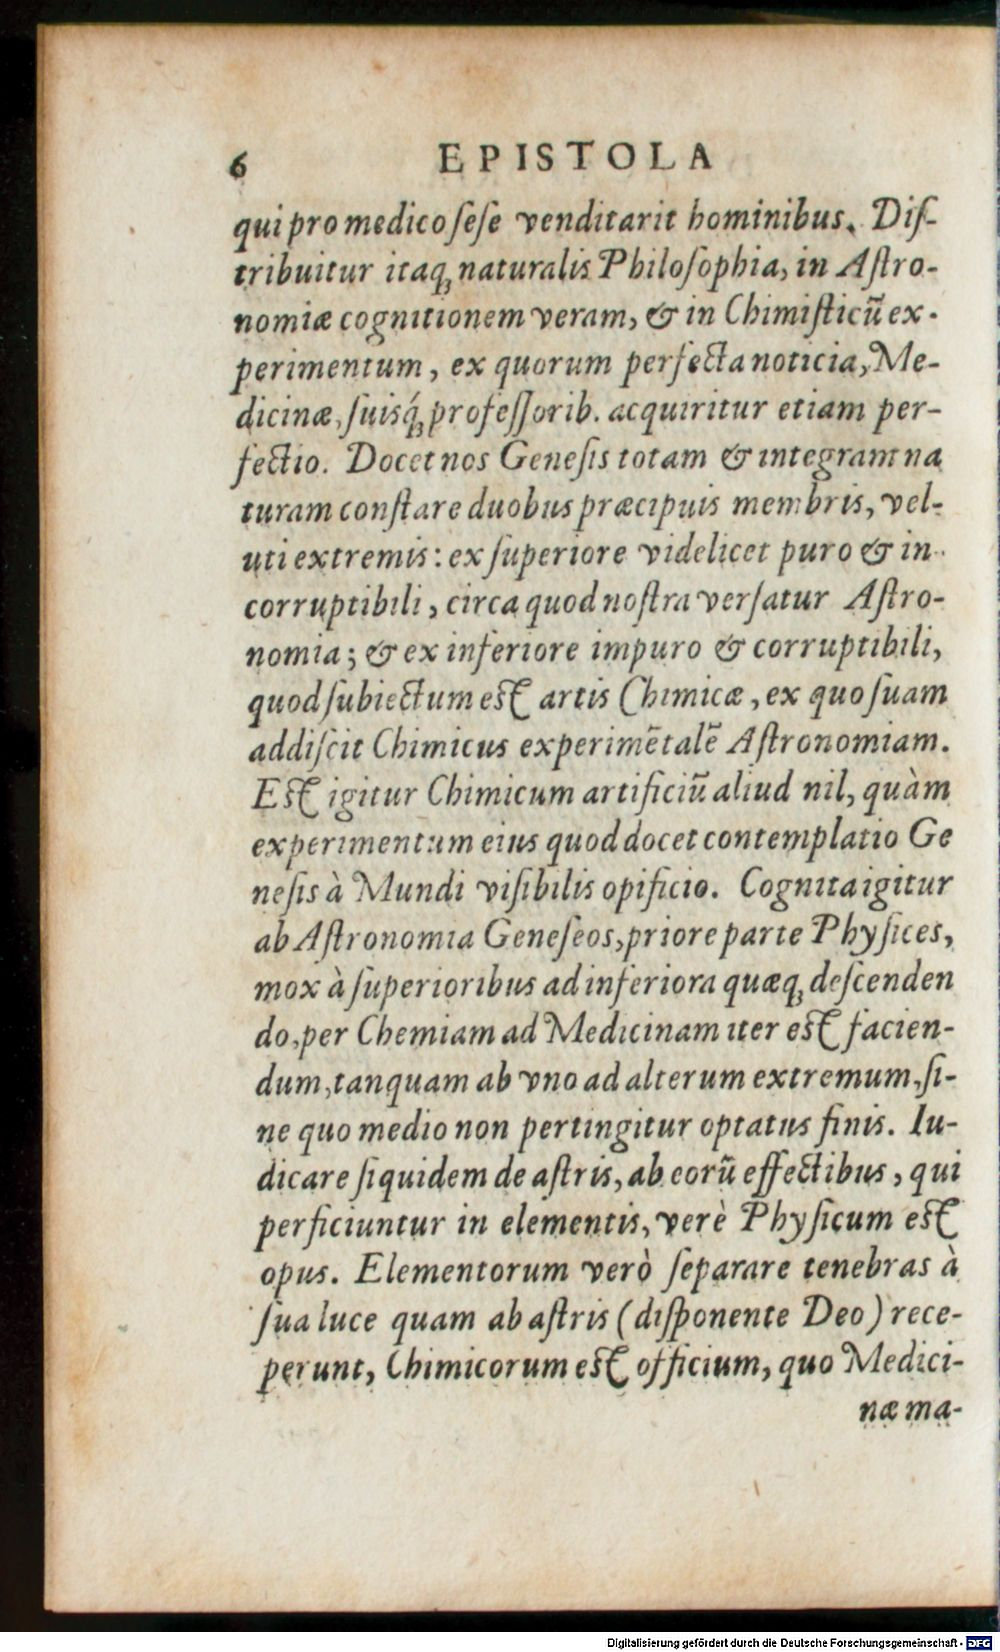 6 EPISTOLA
qui pro medico ſeſe venditarit hominibus. Diſ-
tribuitur itaq́ꝫ naturalis Philoſophia, in Aſtro-
nomiæ cognitionem veram, & in Chimiſticũ ex-
perimentum, ex quorum perfecta noticia, Me-
dicinæ, ſuisq́ꝫ profeſſorib. acquiritur etiam per-
fectio. Docet nos Geneſis totam & integram na
turam conſtare duobus præcipuis membris, vel-
uti extremis: ex ſuperiore videlicet puro & in-
corruptibili, circa quod noſtra verſatur Aſtro-
nomia; & ex inferiore impuro & corruptibili,
quod ſubiectum eſt artis Chimicæ, ex quo ſuam
addiſcit Chimicus experimẽtalẽ Aſtronomiam.
Eſt igitur Chimicum artificiũ aliud nil, quàm
experimentum eius quod docet contemplatio Ge
neſis à Mundi viſibilis opificio. Cognita igitur
ab Aſtronomia Geneſeos, priore parte Phyſices,
mox à ſuperioribus ad inferiora quæqꝫ deſcenden
do, per Chemiam ad Medicinam iter eſt facien-
dum, tanquam ab vno ad alterum extremum, ſi-
ne quo medio non pertingitur optatus finis. Iu-
dicare ſiquidem de aſtris, ab eorũ effectibus, qui
perficiuntur in elementis, verè Phyſicum eſt
opus. Elementorum verò ſeparare tenebras à
ſua luce quam ab aſtris (diſponente Deo) rece-
perunt, Chimicorum eſt officium, quo Medici-
næ ma-
Digitalisierung gefördert durch die Deutsche Forschungsgemeinschaft - DFG